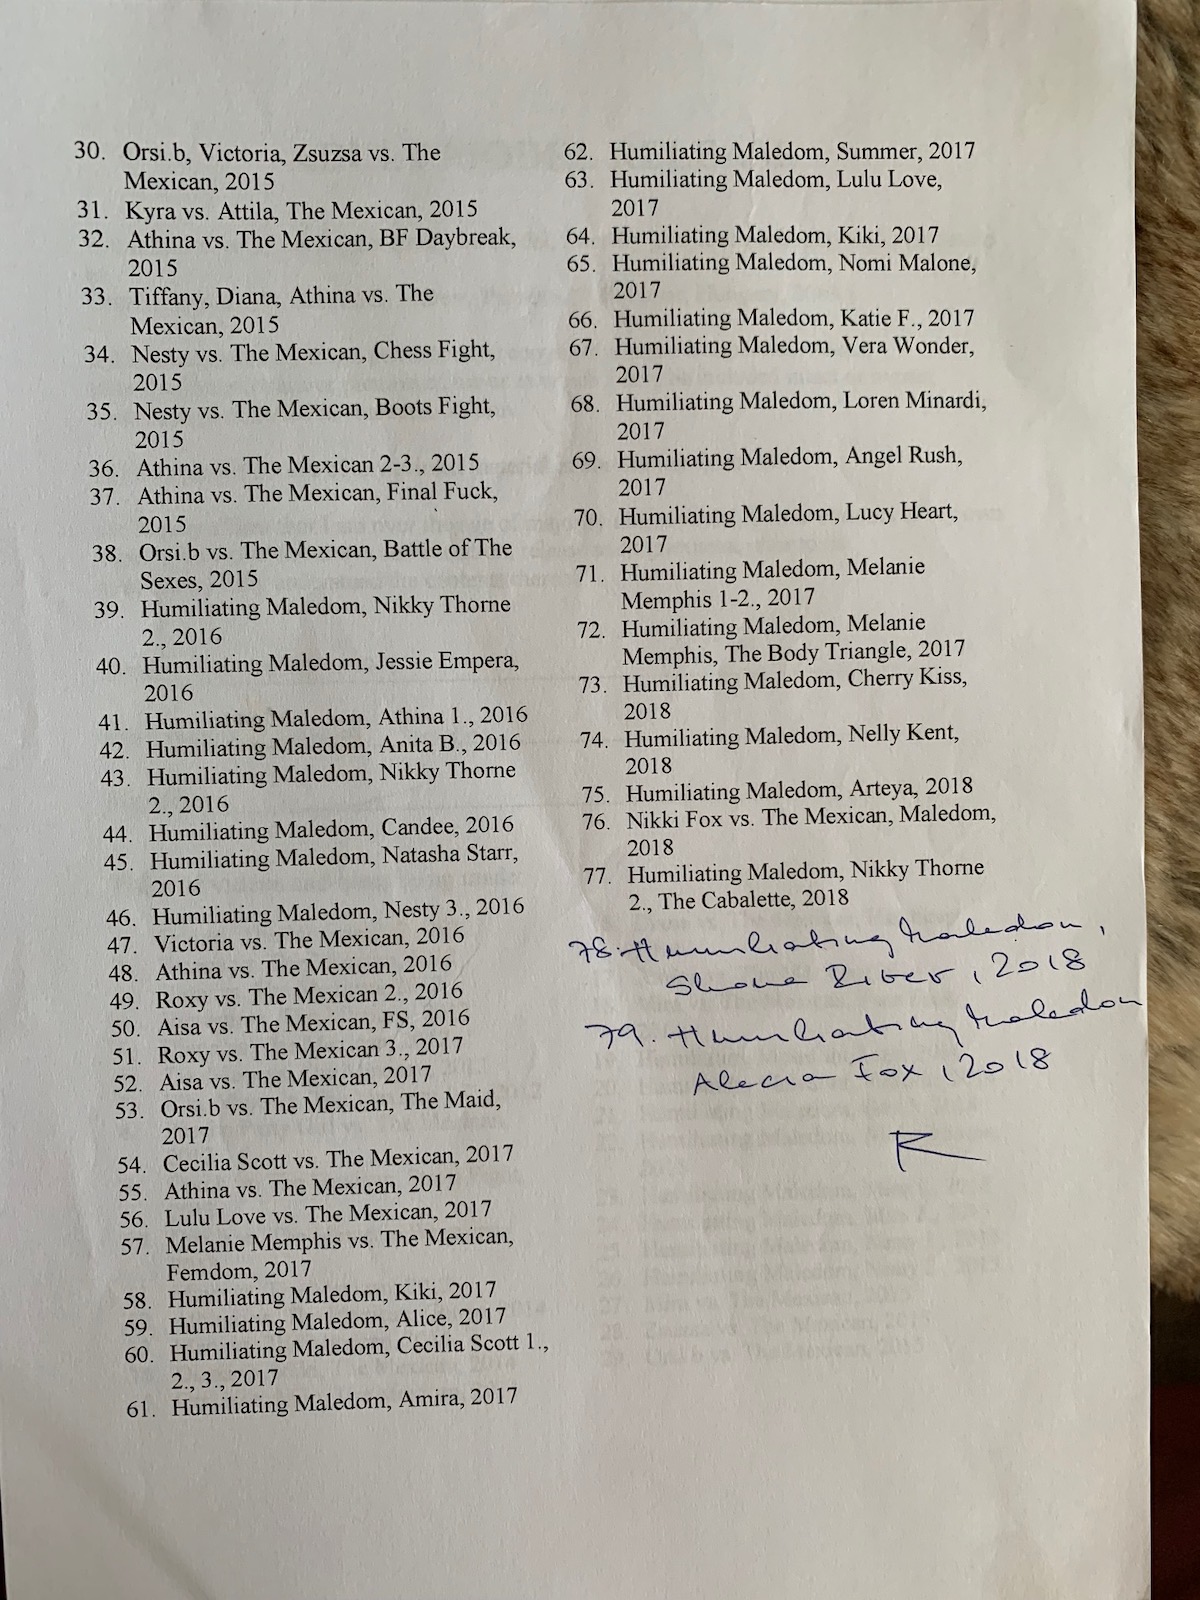 30. Orsi.b, Victoria, Zsuzsa vs. The
Mexican, 2015
31. Kyra vs. Attila, The Mexican, 2015
32. Athina vs. The Mexican, BF Daybreak,
2015
33. Tiffany, Diana, Athina vs. The
Mexican, 2015
34. Nesty vs. The Mexican, Chess Fight,
2015
35. Nesty vs. The Mexican, Boots Fight,
2015
36. Athina vs. The Mexican 2-3., 2015
37. Athina vs. The Mexican, Final Fuck,
2015
38. Orsi.b vs. The Mexican, Battle of The
Sexes, 2015
39. Humiliating Maledom, Nikky Thorne
2., 2016
40. Humiliating Maledom, Jessie Empera,
2016
41. Humiliating Maledom, Athina 1., 2016
42. Humiliating Maledom, Anita B., 2016
43. Humiliating Maledom, Nikky Thorne
2., 2016
44. Humiliating Maledom, Candee, 2016
45. Humiliating Maledom, Natasha Starr,
2016
46. Humiliating Maledom, Nesty 3., 2016
47. Victoria vs. The Mexican, 2016
48. Athina vs. The Mexican, 2016
49. Roxy vs. The Mexican 2., 2016
50. Aisa vs. The Mexican, FS, 2016
51. Roxy vs. The Mexican 3., 2017
52. Aisa vs. The Mexican, 2017
53. Orsi.b vs. The Mexican, The Maid,
2017
54. Cecilia Scott vs. The Mexican, 2017
55. Athina vs. The Mexican, 2017
56. Lulu Love vs. The Mexican, 2017
57. Melanie Memphis vs. The Mexican,
Femdom, 2017
58. Humiliating Maledom, Kiki, 2017
59. Humiliating Maledom, Alice, 2017
60. Humiliating Maledom, Cecilia Scott 1.,
2., 3., 2017
61. Humiliating Maledom, Amira, 2017
62. Humiliating Maledom, Summer, 2017
63. Humiliating Maledom, Lulu Love,
2017
64. Humiliating Maledom, Kiki, 2017
65. Humiliating Maledom, Nomi Malone,
2017
66. Humiliating Maledom, Katie F., 2017
67. Humiliating Maledom, Vera Wonder,
2017
68. Humiliating Maledom, Loren Minardi,
2017
69. Humiliating Maledom, Angel Rush,
2017
70. Humiliating Maledom, Lucy Heart,
2017
71. Humiliating Maledom, Melanie
Memphis 1-2., 2017
72. Humiliating Maledom, Melanie
Memphis, The Body Triangle, 2017
73. Humiliating Maledom, Cherry Kiss,
2018
74. Humiliating Maledom, Nelly Kent,
2018
75. Humiliating Maledom, Arteya, 2018
76. Nikki Fox vs. The Mexican, Maledom,
2018
77. Humiliating Maledom, Nikky Thorne
2., The Cabalette, 2018
78. Humiliating Maledom,
River, 2018
79. Humiliating Maledom
Alecia Fox, 2018